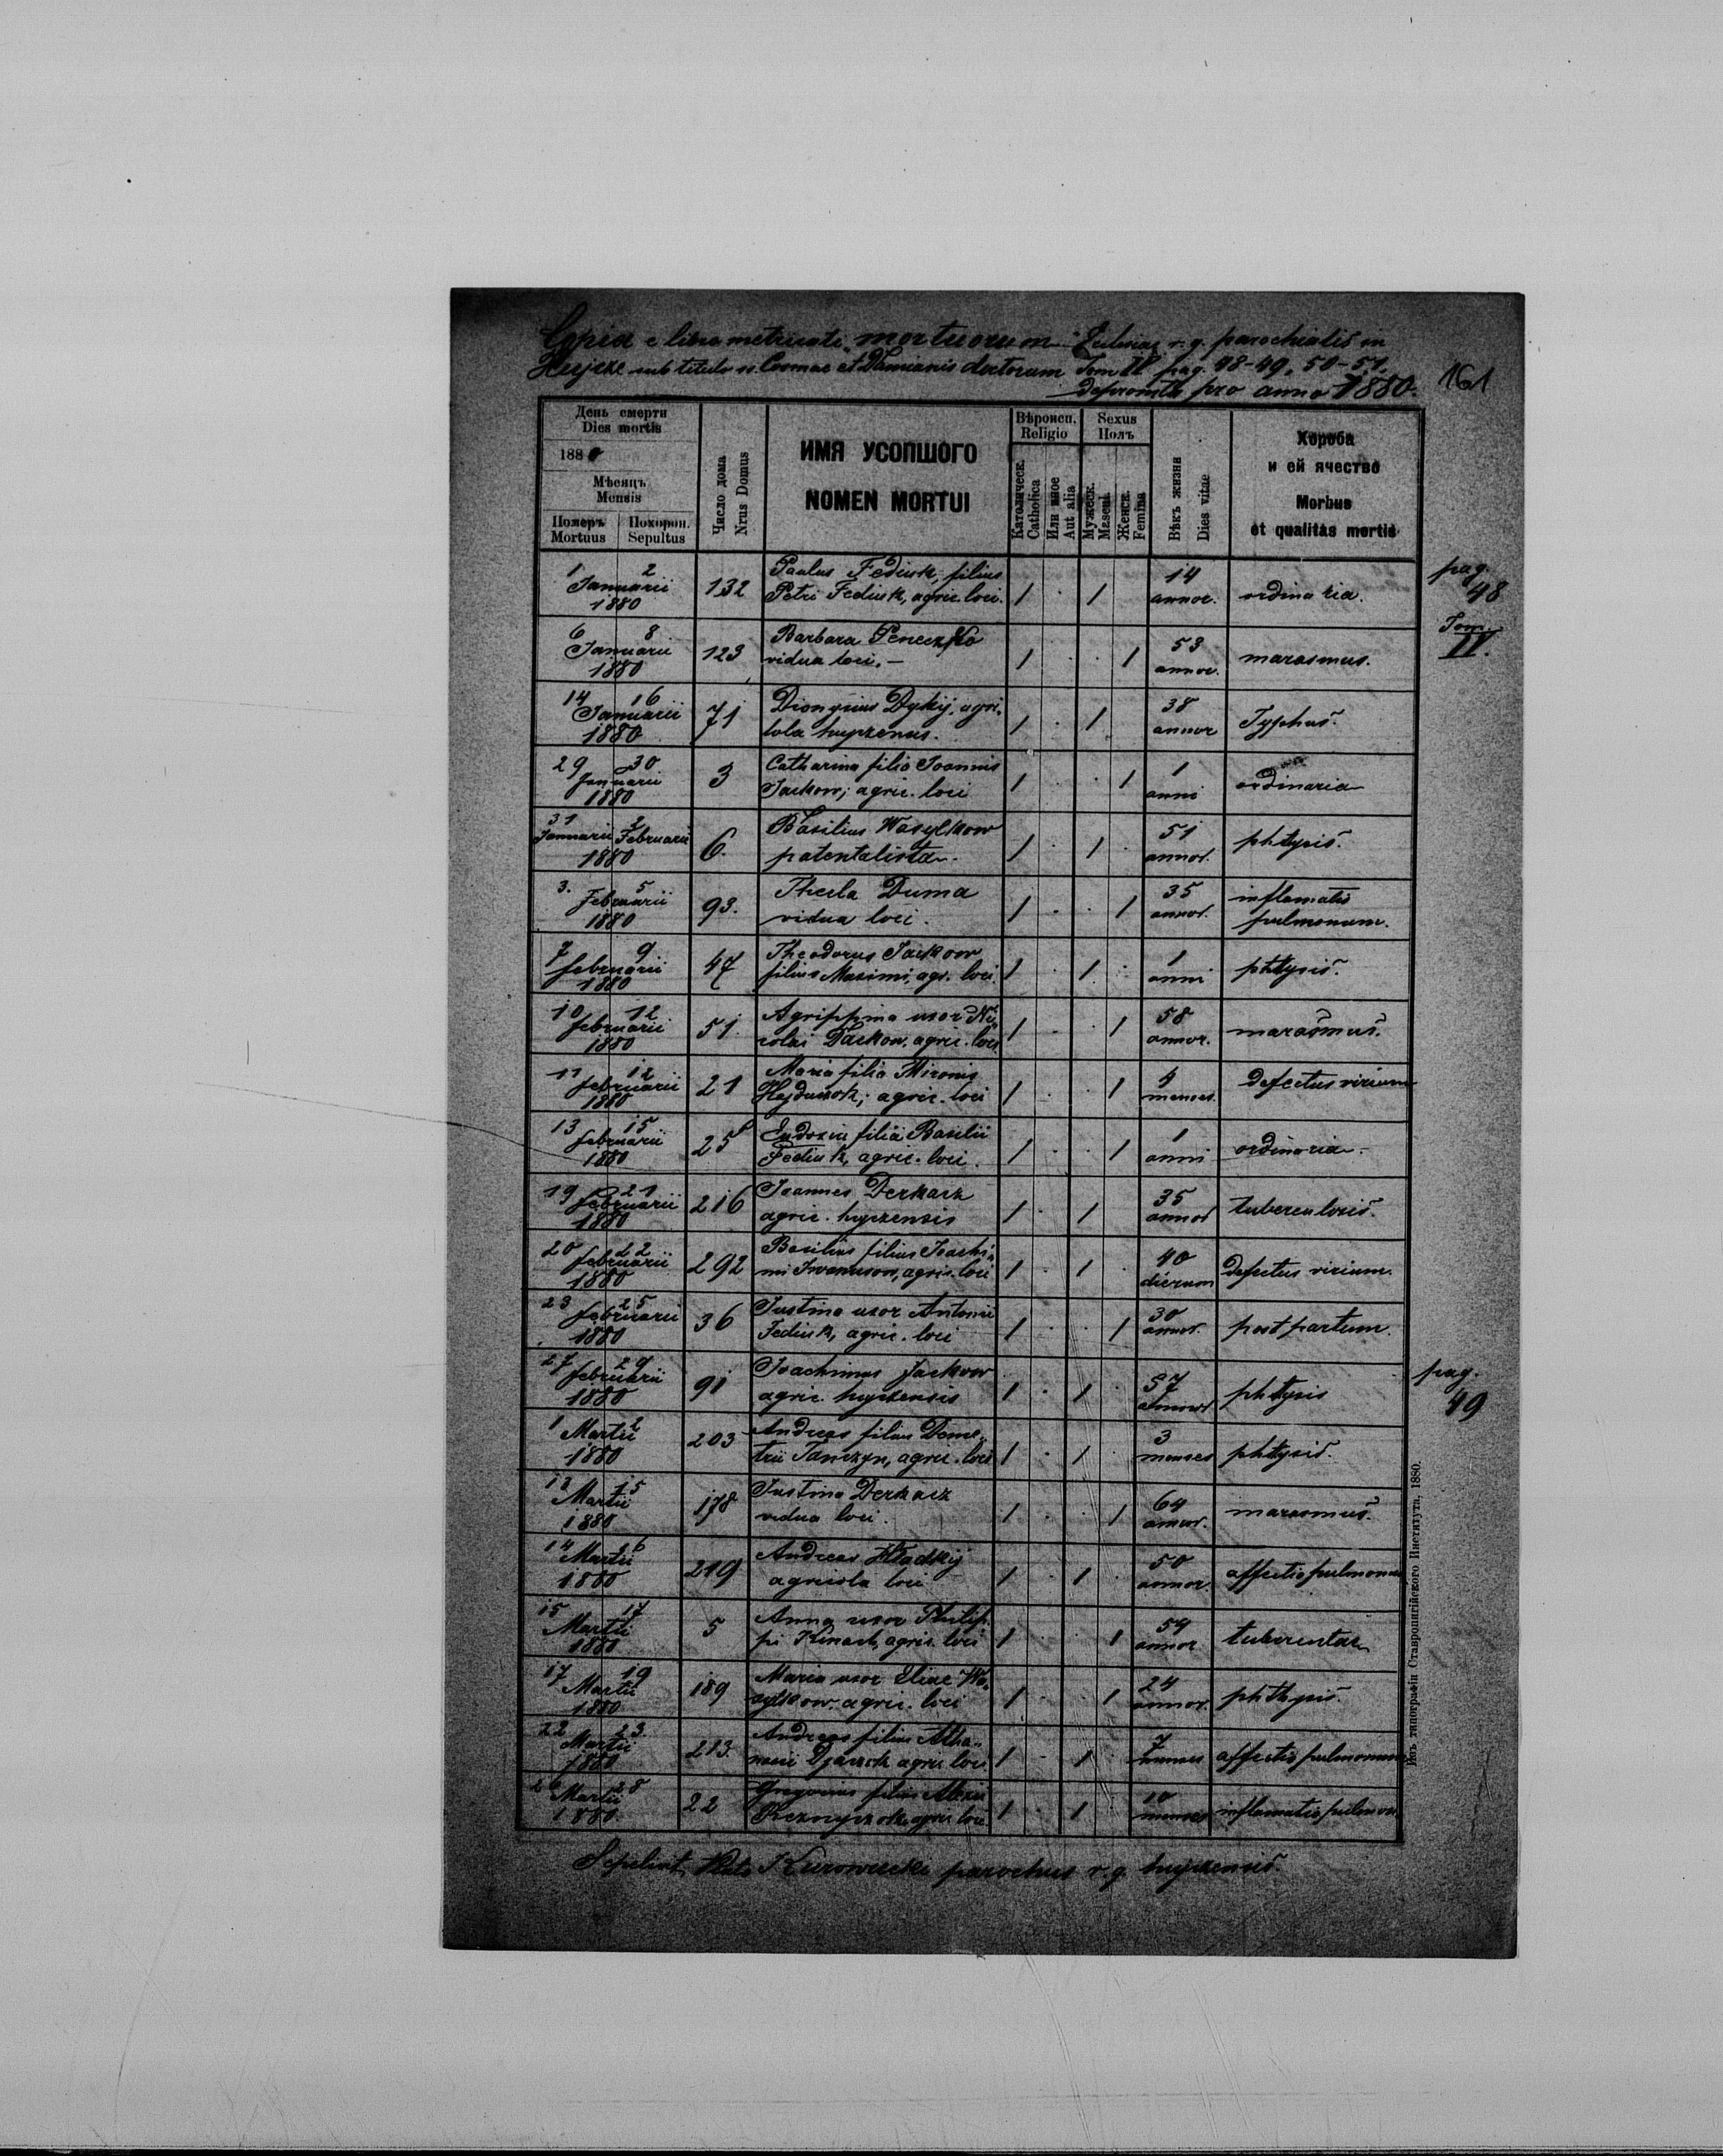 Copia e libro metricali mortuorum Ecclesiae r. g. parochialis in
Hujcze sub titulo ss. Cosmae et Damianis doctorum Tom II pag. 48-49, 50-51,
deprompta pro anno 1880.
161
День смерти
Dies mortis
1880
Мѣсяцъ
Mensis
Померъ
Mortuus
Похорон.
Sepultus
Число дома
Nrus Domus
ИМЯ УСОПШОГО
NOMEN MORTUI
Вѣроисп.
Religio
Католическ.
Catholica
Или иное
Aut alia
Sexus
Полъ
Мужеск.
Mascul.
Женск.
Femina
Вѣкъ жизни
Dies vitae
Хороба
и ей ячество
Morbus
et qualitas mortis
pag.
48
Tom.
II.
1 2
Januarii
1880
132
Paulus Fediuk, filius
Petri Fediuk, agric. loci.
1 . 1
14
annor.
ordinaria.
6 8
Januarii
1880
123
Barbara
vidua loci.—
1 . . 1
53
annor.
marasmus.
14 16
Januarii
1880
71
Dionysius Dykij, agri-
cola hujczenus.
1 . 1
38
annor
Typhus.
29 30
Januarii
1880
3
Catharina filia Joannis
Jackow, agric. loci
1 . . 1
1
anni
ordinaria
31 2
Januarii Februarii
1880
6.
Basilius Wasylkow
patentalista.
1 . 1 .
51
annor.
phtysis.
3. 5
Februarii
1880
93.
Thecla Duma
vidua loci.
1 . . 1
35
annor.
inflamatio
pulmonum.
7 9
februarii
1880
47
Theodorus Jackow
filius Maximi, agr. loci
1 . 1 .
1
anni
phtysis.
10 12
februarii
1880
51.
Agrippina uxor Ni-
colai Jackow, agric. loci
1 . . 1
58
annor.
marasmus.
11 12
februarii
1880
21
Maria filia Mironis
Hajduczok, agric. loci
1 . . 1
menses
defectus virium
13 15
februarii
1880
25
Eudoxia filia Basilii
Fediuk, agric. loci.
1 . . 1
1
anni
ordinaria.
19 21
februarii
1880
216
Joannes Derkacz
agric. hujczensis
1 . 1
35
annor
tuberculosis.
20 22
februarii
1880
292
Basilius filius Joachi-
mi agric. loci
1 . 1 .
40
dierum
defectus virium.
23 25
februarii
1880
36
Justina uxor Antonii
Fediuk, agric. loci
1 . . 1
30
annor.
post partum.
pag.
49
27 29
februarii
1880
91
Joachimus Jackow
agric. hujczensis
1 . 1 .
57
annor
phtysis
1 2
Martii
1880
203
Andreas filius Deme-
trii Janczyn, agric. loci
1 . 1
3
menses
phtysis.
13 15
Martii
1880
178
Justina Derkacz
vidua loci.
1 . . 1
64
annor.
marasmus.
14 16
Martii
1880
219
Andreas Hladkij
agricola loci
1 . 1 .
50
annor.
affectio pulmonum
15 17
Martii
1880
5
Anna uxor Philip-
pi agric. loci
1 . . 1
54
annor
17 19
Martii
1880
189
Maria uxor Eliae Wa-
sylkow, agric. loci
1 . . 1
24
annor.
phthysis.
22 23.
Martii
1880
213.
Andreas filius Atha-
nasii agric. loci
1 . 1
7
menses
affectio pulmonum
26 28
Martii
1880
22
Gregorius filius Alexii
agric. loci
1 . 1
10
menses
inflamatio pulmon.
Изъ типографіи Ставропигійского Института, 1880.
Sepelivit parochus r. g. hujczensis.